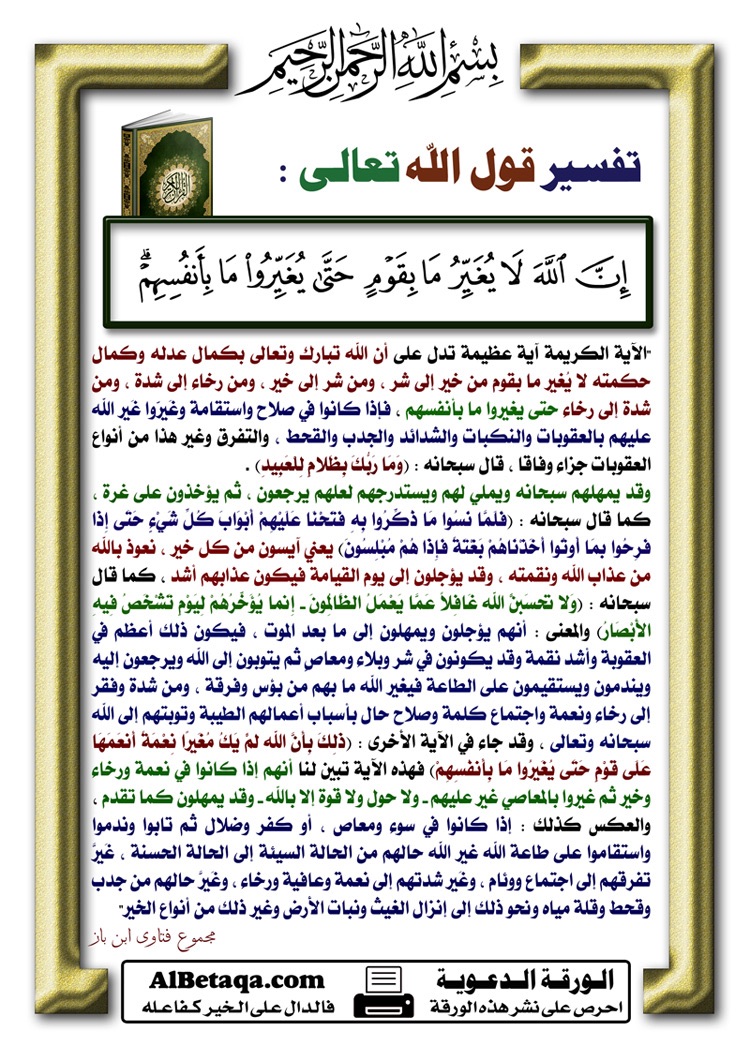 بِسْمِ اللَّهِ الرَّحْمَٰنِ الرَّحِيمِ
القرآن الكريم
تفسير قول الله تعالى :
إِنَّ ٱللَّهَ لَا يُغَيِّرُ مَا بِقَوۡمٍ حَتَّىٰ يُغَيِّرُواْ مَا بِأَنفُسِهِمۡۗ
"الآية الكريمة آية عظيمة تدل على أن الله تبارك وتعالى بكمال عدله وكمال
حكمته لا يُغير ما بقوم من خير إلى شر ، ومن شر إلى خير ، ومن رخاء إلى شدة ، ومن
شدة إلى رخاء حتى يغيروا ما بأنفسهم ، فإذا كانوا في صلاح واستقامة وغَيَروا غَير الله
عليهم بالعقوبات والنكبات والشدائد والجدب والقحط ، والتفرق وغير هذا من أنواع
العقوبات جزاء وفاقا ، قال سبحانه : (وَمَا رَبُّكَ بِظَلَّامٍ لِلْعَبِيدِ) .
وقد يمهلهم سبحانه ويملي لهم ويستدرجهم لعلهم يرجعون ، ثم يؤخذون على غرة ،
كما قال سبحانه : (فَلَمَّا نَسُوا مَا ذُكِّرُوا بِهِ فَتَحْنَا عَلَيْهِمْ أَبْوَابَ كُلِّ شَيْءٍ حَتَّى إِذَا
فَرِحُوا بِمَا أُوتُوا أَخَذْنَاهُمْ بَغْتَةً فَإِذَا هُمْ مُبْلِسُونَ) يعني آيسون من كل خير ، نعوذ بالله
من عذاب الله ونقمته ، وقد يؤجلون إلى يوم القيامة فيكون عذابهم أشد ، كما قال
سبحانه : (وَلَا تَحْسَبَنَّ اللَّهَ غَافِلًا عَمَّا يَعْمَلُ الظَّالِمُونَ ـ إِنَّمَا يُؤَخِّرُهُمْ لِيَوْمٍ تَشْخَصُ فِيهِ
الْأَبْصَارُ) والمعنى : أنهم يؤجلون ويمهلون إلى ما بعد الموت ، فيكون ذلك أعظم في
العقوبة وأشد نقمة وقد يكونون في شر وبلاء ومعاصٍ ثم يتوبون إلى الله ويرجعون إليه
ويندمون ويستقيمون على الطاعة فيغير الله ما بهم من بؤس وفرقة ، ومن شدة وفقر
إلى رخاء ونعمة واجتماع كلمة وصلاح حال بأسباب أعمالهم الطيبة وتوبتهم إلى الله
سبحانه وتعالى ، وقد جاء في الآية الأخرى : (ذَلِكَ بِأَنَّ اللَّهَ لَمْ يَكُ مُغَيِّرًا نِعْمَةً أَنْعَمَهَا
عَلَى قَوْمٍ حَتَّى يُغَيِّرُوا مَا بِأَنْفُسِهِمْ) فهذه الآية تبين لنا أنهم إذا كانوا في نعمة ورخاء
وخير ثم غيروا بالمعاصي غير عليهم ـ ولا حول ولا قوة إلا بالله ـ وقد يمهلون كما تقدم ،
والعكس كذلك : إذا كانوا في سوء ومعاص ، أو كفر وضلال ثم تابوا وندموا
واستقاموا على طاعة الله غير الله حالهم من الحالة السيئة إلى الحالة الحسنة ، غَيرَّ
تفرقهم إلى اجتماع ووئام ، وغَير شدتهم إلى نعمة وعافية ورخاء ، وغَيرَّ حالهم من جدب
وقحط وقلة مياه ونحو ذلك إلى إنزال الغيث ونبات الأرض وغير ذلك من أنواع الخير"
مجموع فتاوى ابن باز
الورقة الدعوية
احرص على نشر هذه الورقة
AlBetaqa.com
فالدال على الخير كفاعله